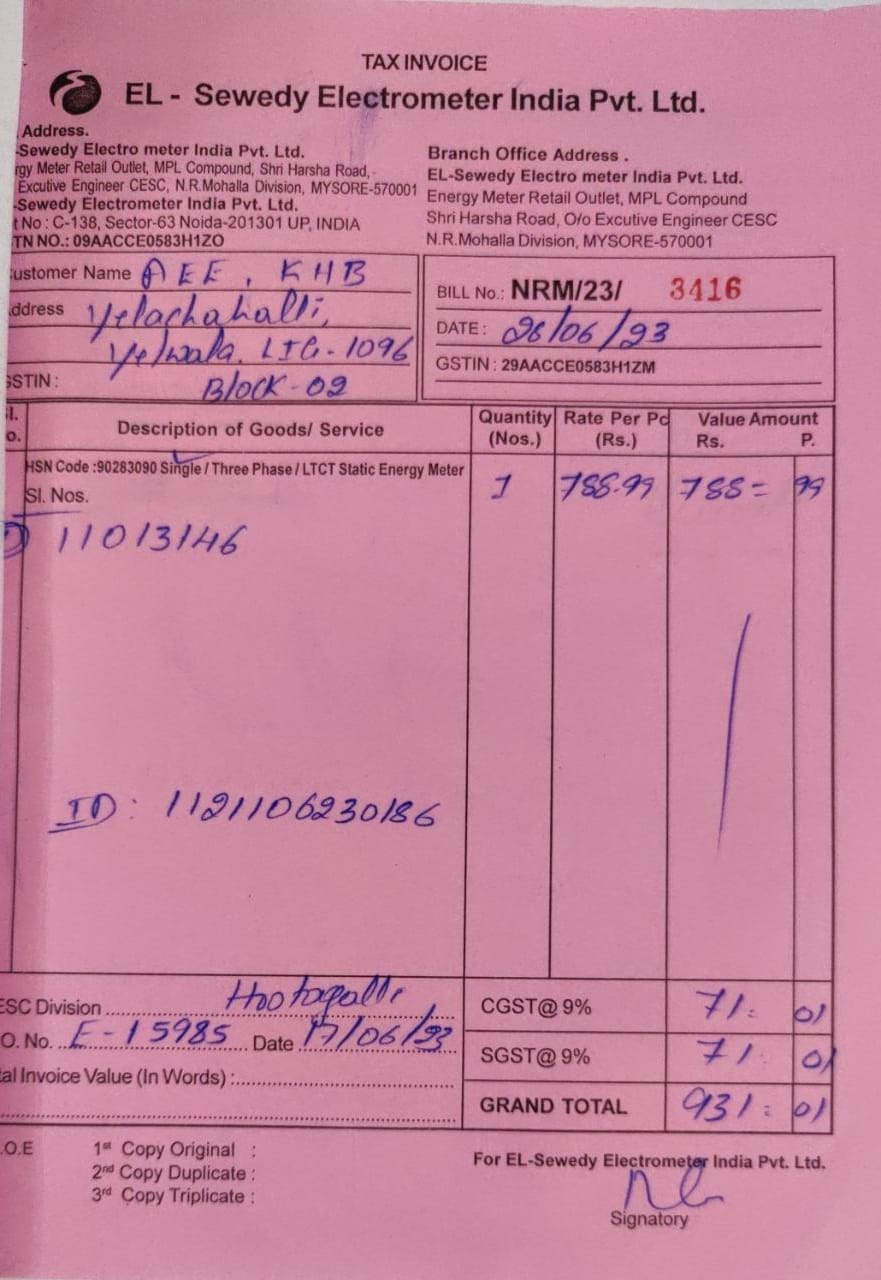 TAX INVOICE
EL - Sewedy Electrometer India Pvt. Ltd.
Address.
-Sewedy Electro meter India Pvt. Ltd.
rgy Meter Retail Outlet, MPL Compound, Shri Harsha Road,
Excutive Engineer CESC, N.R.Mohalla Division, MYSORE-570001
-Sewedy Electrometer India Pvt. Ltd.
t No : C-138, Sector-63 Noida-201301 UP, INDIA
TN NO.: 09AACCE0583H1ZO
Branch Office Address .
EL-Sewedy Electro meter India Pvt. Ltd.
Energy Meter Retail Outlet, MPL Compound
Shri Harsha Road, O/o Excutive Engineer CESC
N.R.Mohalla Division, MYSORE-570001
ustomer Name AEE, KHB
ddress Yelachahalli,
Yelwala. LIG-1096
GSTIN : Block-02
BILL No.: NRM/23/ 3416
DATE : 28/06/23
GSTIN : 29AACCE0583H1ZM
Sl. o. Description of Goods/ Service Quantity (Nos.) Rate Per Pc (Rs.) Value Amount Rs. P.
HSN Code :90283090 Single / Three Phase / LTCT Static Energy Meter
Sl. Nos. 1 788.99 788= 99
1) 11013146
ID: 1121106230186
ESC Division Hootagalli
O. No. E-15985 Date 17/06/23
al Invoice Value (In Words) :
CGST@ 9% 71. 01
SGST@ 9% 71. 01
GRAND TOTAL 931: 01
.O.E
1st Copy Original :
2nd Copy Duplicate :
3rd Copy Triplicate :
For EL-Sewedy Electrometer India Pvt. Ltd.
Signatory